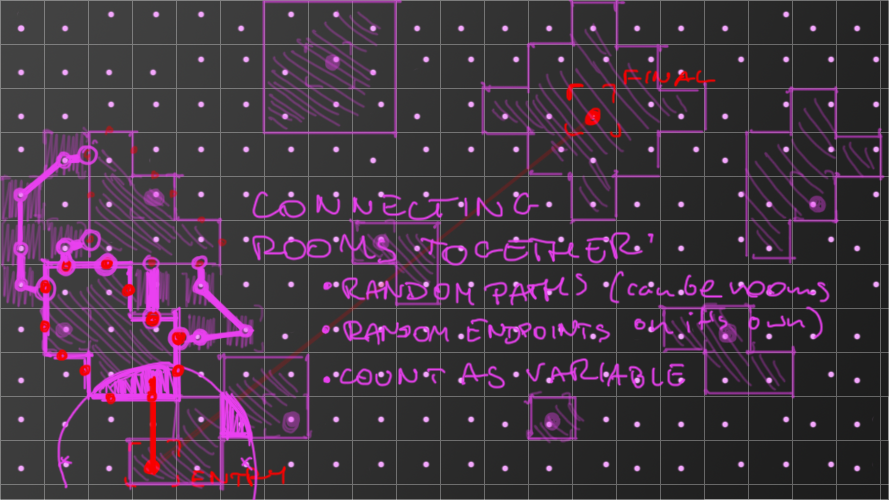 FINAL
CONNECTING
ROOMS TOGETHER:
• RANDOM PATHS (can be rooms
• RANDOM ENDPOINTS on it's own)
• COUNT AS VARIABLE
ENTRY